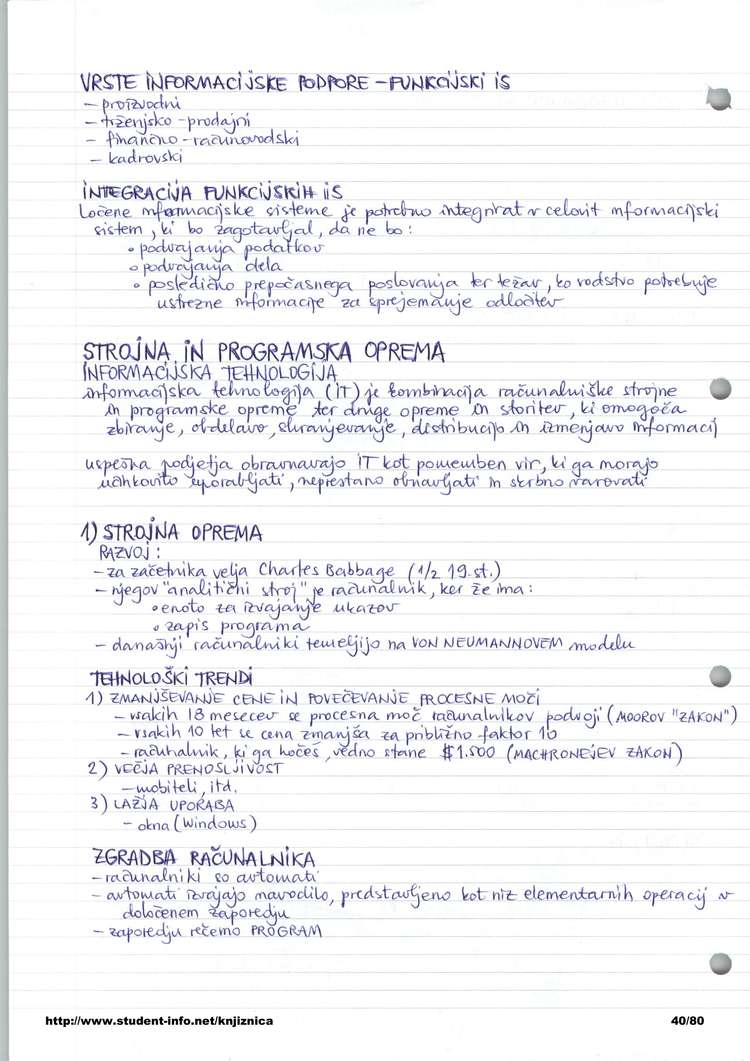 VRSTE INFORMACIJSKE PODPORE – FUNKCIJSKI IS
– proizvodni
– trženjsko - prodajni
– finančno - računovodski
– kadrovski
INTEGRACIJA FUNKCIJSKIH IS
Ločene informacijske sisteme je potrebno integrirat v celovit informacijski
sistem, ki bo zagotavljal, da ne bo:
• podvajanja podatkov
• podvajanja dela
• posledično prepočasnega poslovanja ter težav, ko vodstvo potrebuje
ustrezne informacije za sprejemanje odločitev
STROJNA IN PROGRAMSKA OPREMA
INFORMACIJSKA TEHNOLOGIJA
informacijska tehnologija (IT) je kombinacija računalniške strojne
in programske opreme ter druge opreme in storitev, ki omogoča
zbiranje, obdelavo, shranjevanje, distribucijo in izmenjavo informacij
uspešna podjetja obravnavajo IT kot pomemben vir, ki ga morajo
učinkovito uporabljati, neprestano obnavljati in skrbno varovati
1) STROJNA OPREMA
RAZVOJ:
– za začetnika velja Charles Babbage (1/2 19. st.)
– njegov "analitični stroj" je računalnik, ker že ima:
• enoto za izvajanje ukazov
• zapis programa
– današnji računalniki temeljijo na VON NEUMANNOVEM modelu
TEHNOLOŠKI TRENDI
1) ZMANJŠEVANJE CENE IN POVEČEVANJE PROCESNE MOČI
– vsakih 18 mesecev se procesna moč računalnikov podvoji (MOOROV "ZAKON")
– vsakih 10 let se cena zmanjša za približno faktor 10
– računalnik, ki ga hočeš, vedno stane $1.500 (MACHRONEJEV ZAKON)
2) VEČJA PRENOSLJIVOST
– mobiteli, itd.
3) LAŽJA UPORABA
– okna (Windows)
ZGRADBA RAČUNALNIKA
– računalniki so avtomati
– avtomati izvajajo navodilo, predstavljeno kot niz elementarnih operacij v
določenem zaporedju
– zaporedju rečemo PROGRAM
http://www.student-info.net/knjiznica
40/80